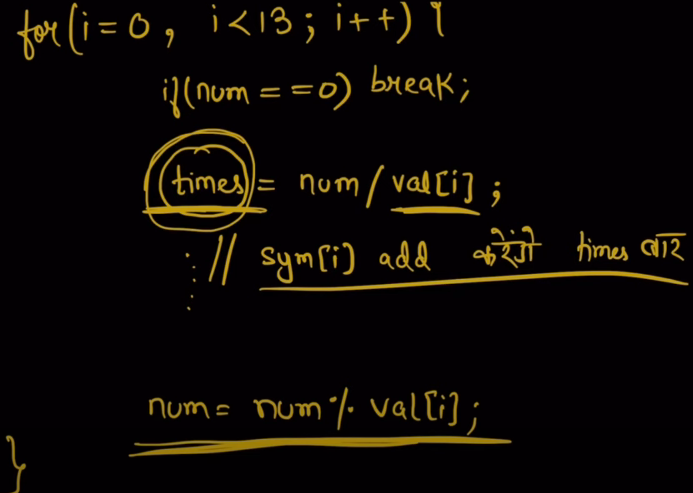 for(i=0, i<13; i++) {
if(num==0) break;
times = num/val[i];
// sym[i] add करेंगे times बार
num= num % val[i];
}